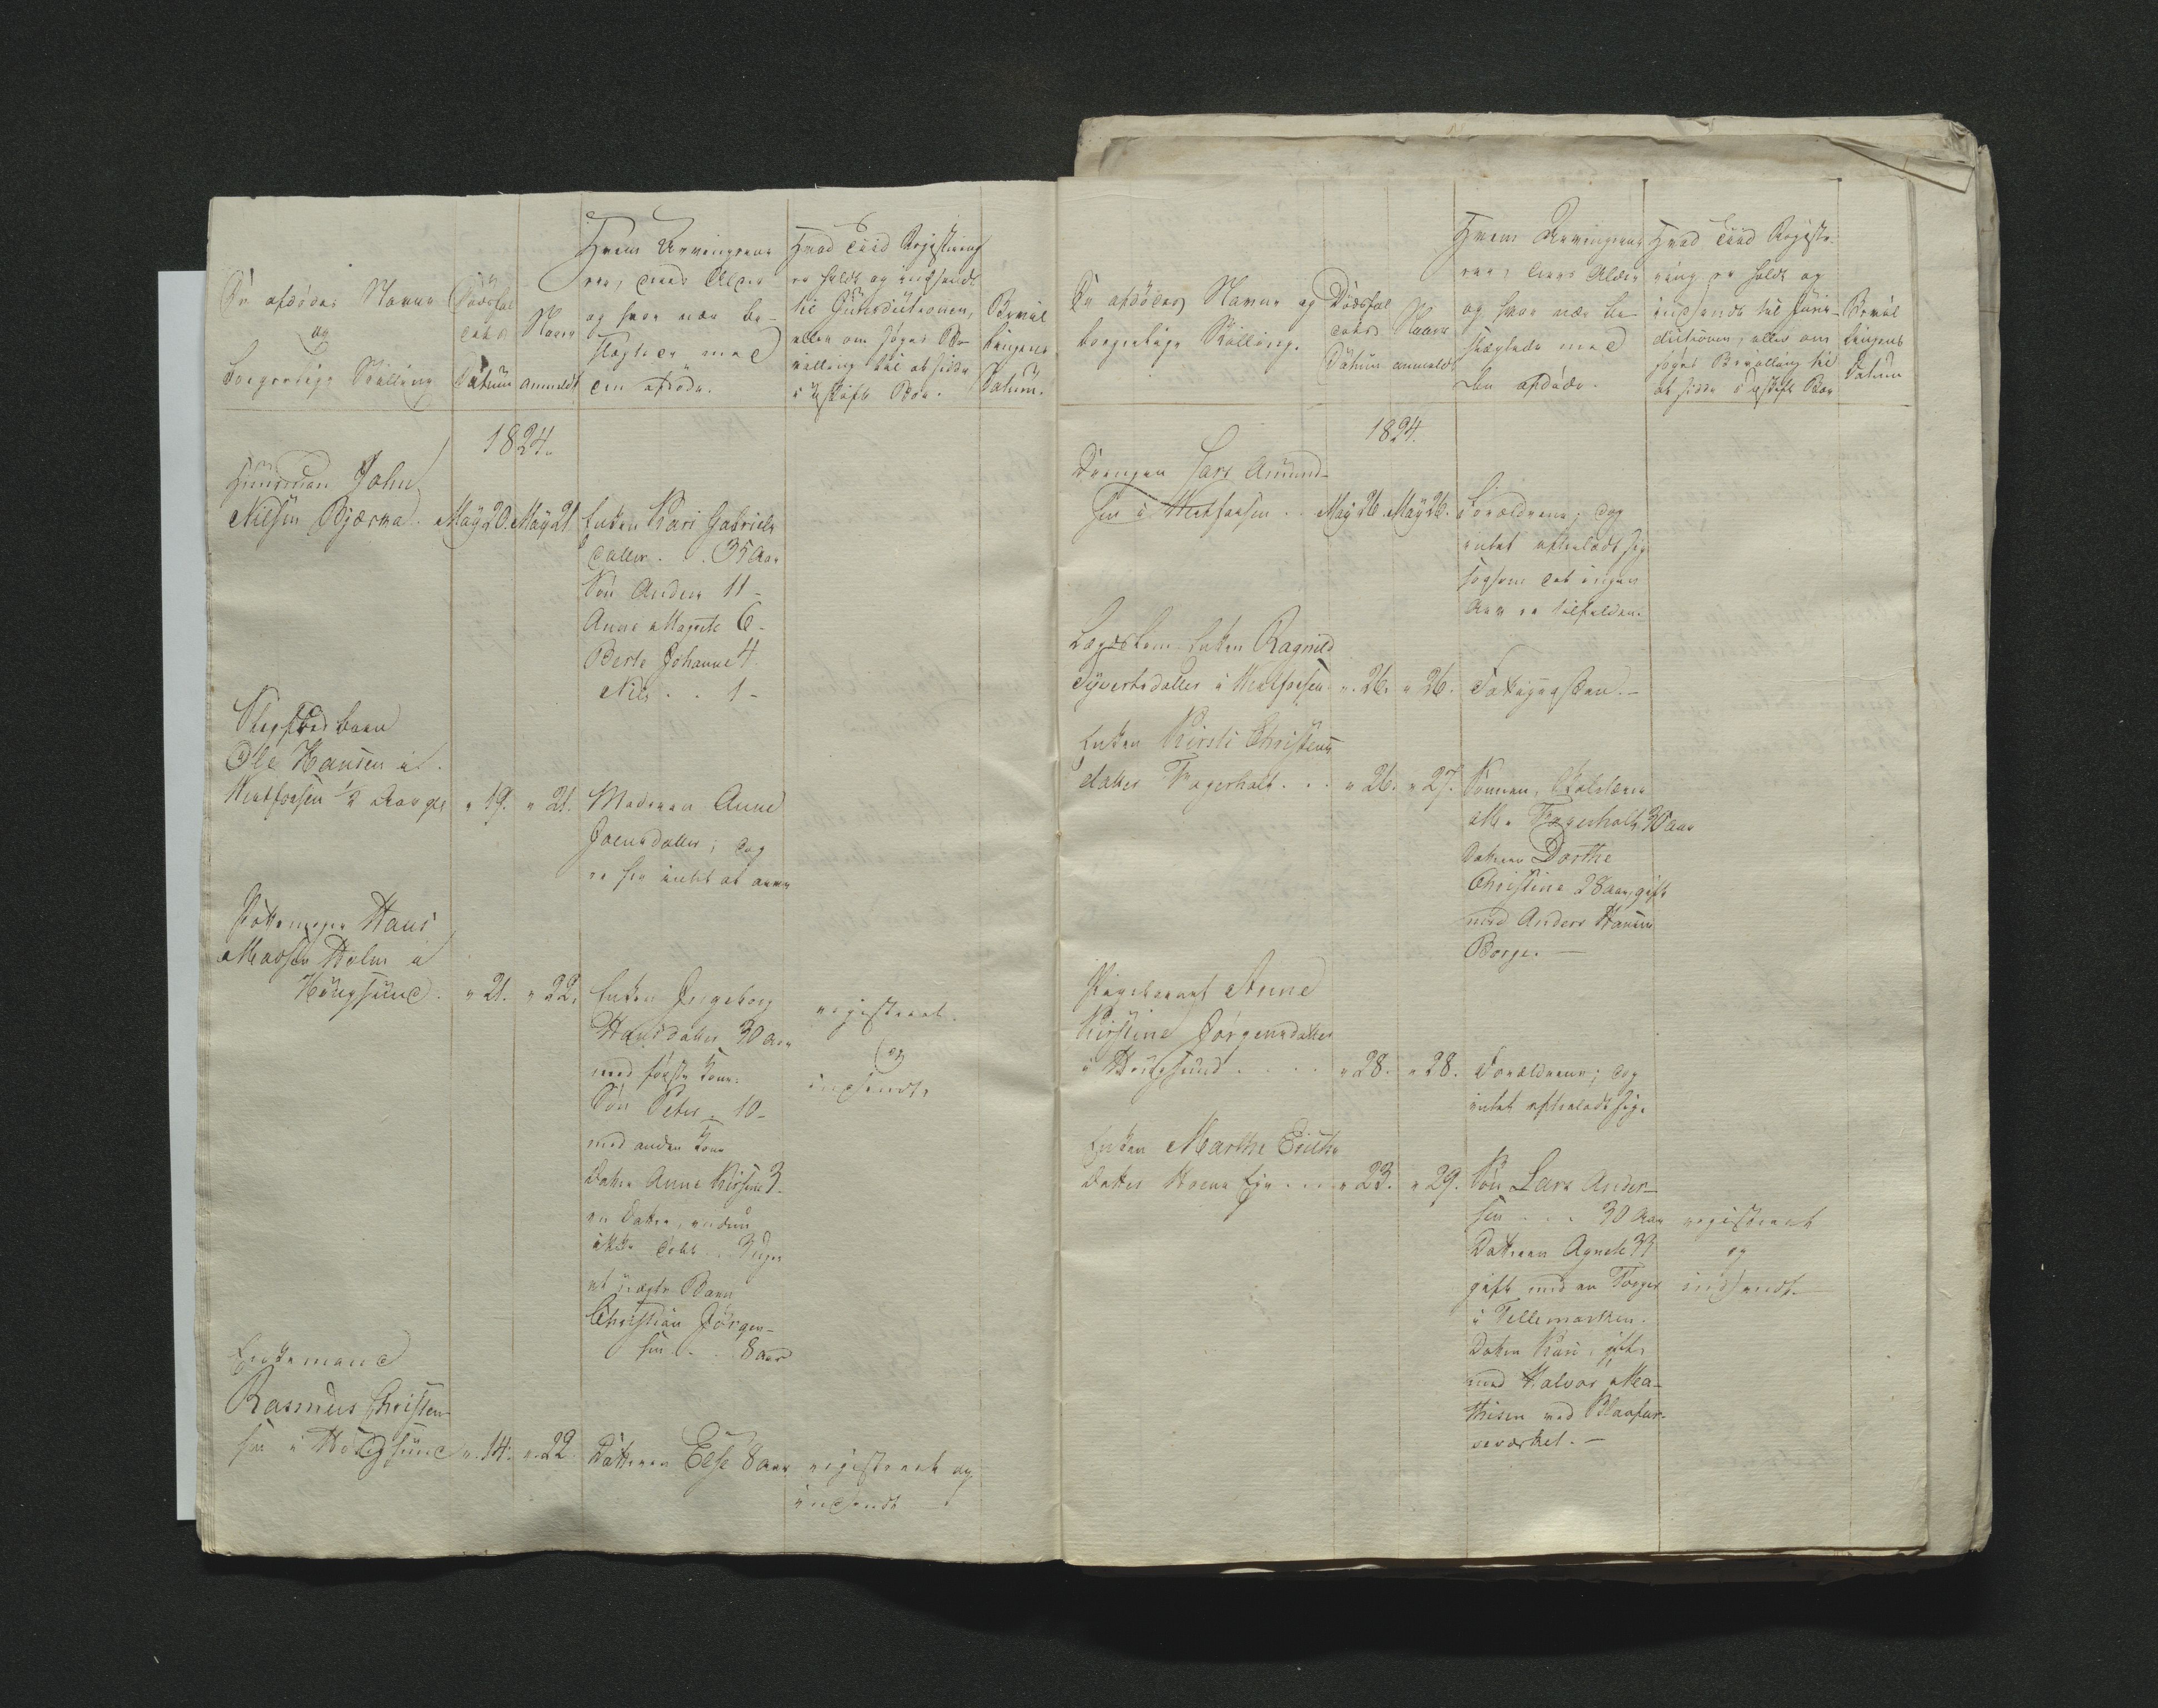 De afdödes Navne
og
borgerlige Stilling
Dödsfal
dets
Datum
Naar
anmeldt
Hvem Arvingerne
ere, deres Alder
og hvor nær be-
slægtede med
den afdöde.
Hvad Tiid Registrering
er holdt og indsendt
til Jurisdictionen,
eller om söges Be-
villing til at sidde
i uskiftet Boe.
Bevil
lingens
Datum.
1824.
Huusmand John
Nielsen Bjerva. May 20. May 21. Enken Kari Gabriels
datter. . . 35 Aar
Sön Anders 11 -
Anne Magrete 6 -
Berte Johanne 4
Niels . . 1 -
Slegfred barn
Ole Hansen i
Westfossen 1/2 Aar gl. " 19. " 21. Moderen Anne
Joensdatter; dog
er her intet at arve
Pottemager Hans
Madsen Holm i
Hougsund. " 21. " 22. Enken Ingeborg
Hansdatter 30 Aar
med förste Kone
Sön Peter - 10 -
med anden Kone
Datter Anne Kirstine 3 -
en Datter, endnu
ikke döbt . . 3 uger
et uægte Barn
Christian Jörgen-
sen . . 8 Aar
registreret
og
indsendt.
Enkemand
Rasmus Christen-
sen i Hougsund " 14. " 22. Datteren Else 8 Aar registreret og
indsendt
De afdödes Navne og
borgerlige Stilling.
Dödsfal
dets
Datum
Naar
anmeldt
Hvem Arvingerne
ere, deres Alder
og hvor nær be-
slægtede med
den afdöde.
Hvad Tiid Registre-
ring er holdt og
indsendt til Juris-
dictionen, eller om
söges Bevilling til
at sidde i uskiftet Boe
Bevil
lingens
Datum
1824.
Drengen Lars Amund-
sen i Westfossen . . May 26. May 26. Forældrene; dog
intet efterladt sig
ligesom det ingen
Arv er tilfalden.
Lægdslem Enken Ragnild
Syvertsdatter i Westfossen. " 26. " 26. Fattigvæsenet. -
Enken Kirsti Christens
datter Fagerholt . . . " 26. " 27. Sönnen, Skolelærer
Fagerholt 30 Aar
Datteren Dorthe
Christine 28 Aar, gift
med Anders Hansen
Borge. -
Pigebarnet Anne
Kirstine Jörgensdatter
i Hougsund . . . . " 28. " 28. Forældrene; dog
intet efterladt sig.
Enken Marthe Eriks
Datter . . . " 23. " 29. Sön Lars Ander-
sen . . . 30 Aar
Datteren Agnete 33
gift med en Torger
i Tellemarken.
Datter Kari, gift
med Halvor Ma-
thisen ved Blaafar-
veværket. -
registreret
og
indsendt. -